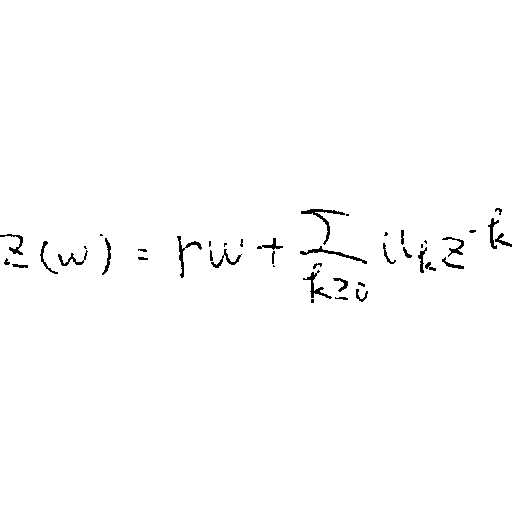 z(w) = rw + \sum_{k \geq 0} u_k z^{-k}